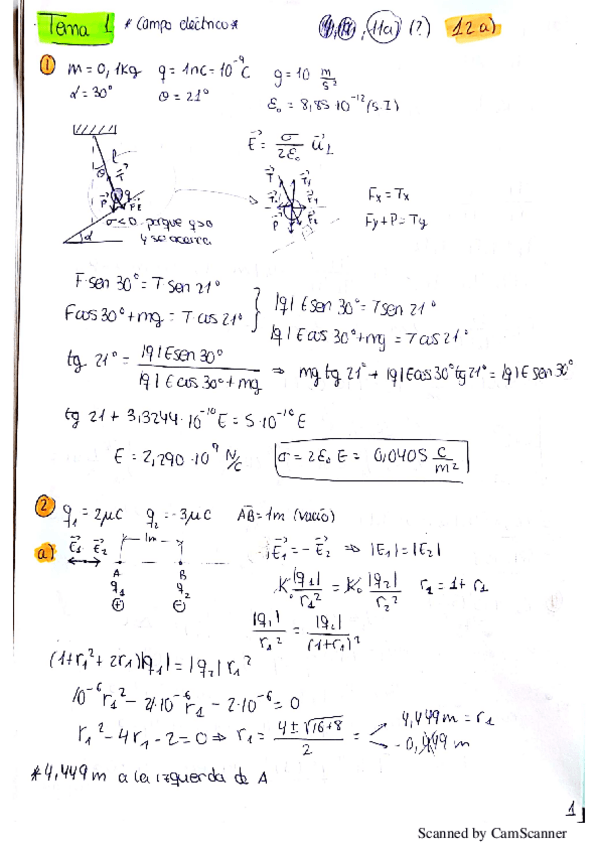 Tema 1 * Campo eléctrico * 11a) (?) 12a)
① m = 0,1kg q = 1nc = 10⁻⁹C g = 10 m/s²
α = 30° θ = 21° ε₀ = 8,85·10⁻¹² (S.I)
E⃗ = σ/2ε₀ u⃗⊥
θ T⃗ l q
P⃗ F⃗E
σ<0 porque q>0
y se acerca
α
Fx = Tx
Fy + P = Ty
F·sen 30° = T sen 21°
F cos 30° + mg = T cos 21°
|q|E sen 30° = T sen 21°
|q|E cos 30° + mg = T cos 21°
tg 21° = |q|E sen 30° / |q|E cos 30° + mg ⇒ mg tg 21° + |q|E cos 30° tg 21° = |q|E sen 30°
tg 21 + 3,3244·10⁻¹⁰ E = 5·10⁻¹⁰ E
E = 2,290·10⁹ N/C σ = 2ε₀ E = 0,0405 C/m²
② q₁ = 2μC q₂ = -3μC AB = 1m (vacío)
a) E⃗₁ E⃗₂ 1m E⃗₁ = - E⃗₂ ⇒ |E₁| = |E₂|
A B
q₁ q₂
⊕ ⊖
K₀ |q₁|/r₁² = K₀ |q₂|/r₂² r₂ = 1 + r₁
|q₁|/r₁² = |q₂|/(1+r₁)²
(1 + r₁² + 2r₁)|q₁| = |q₂| r₁²
10⁻⁶ r₁² - 4·10⁻⁶ r₁ - 2·10⁻⁶ = 0
r₁² - 4r₁ - 2 = 0 ⇒ r₁ = 4 ± √16+8 / 2 = 4,449 m = r₁
- 0,449 m
* 4,449 m a la izquierda de A
1
Scanned by CamScanner